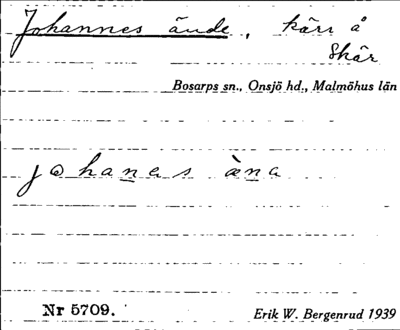 Johannes ände, kärr å
Skär
Bosarps sn., Onsjö hd., Malmöhus län
johanas àna
Nr 5709.
Erik W. Bergenrud 1939